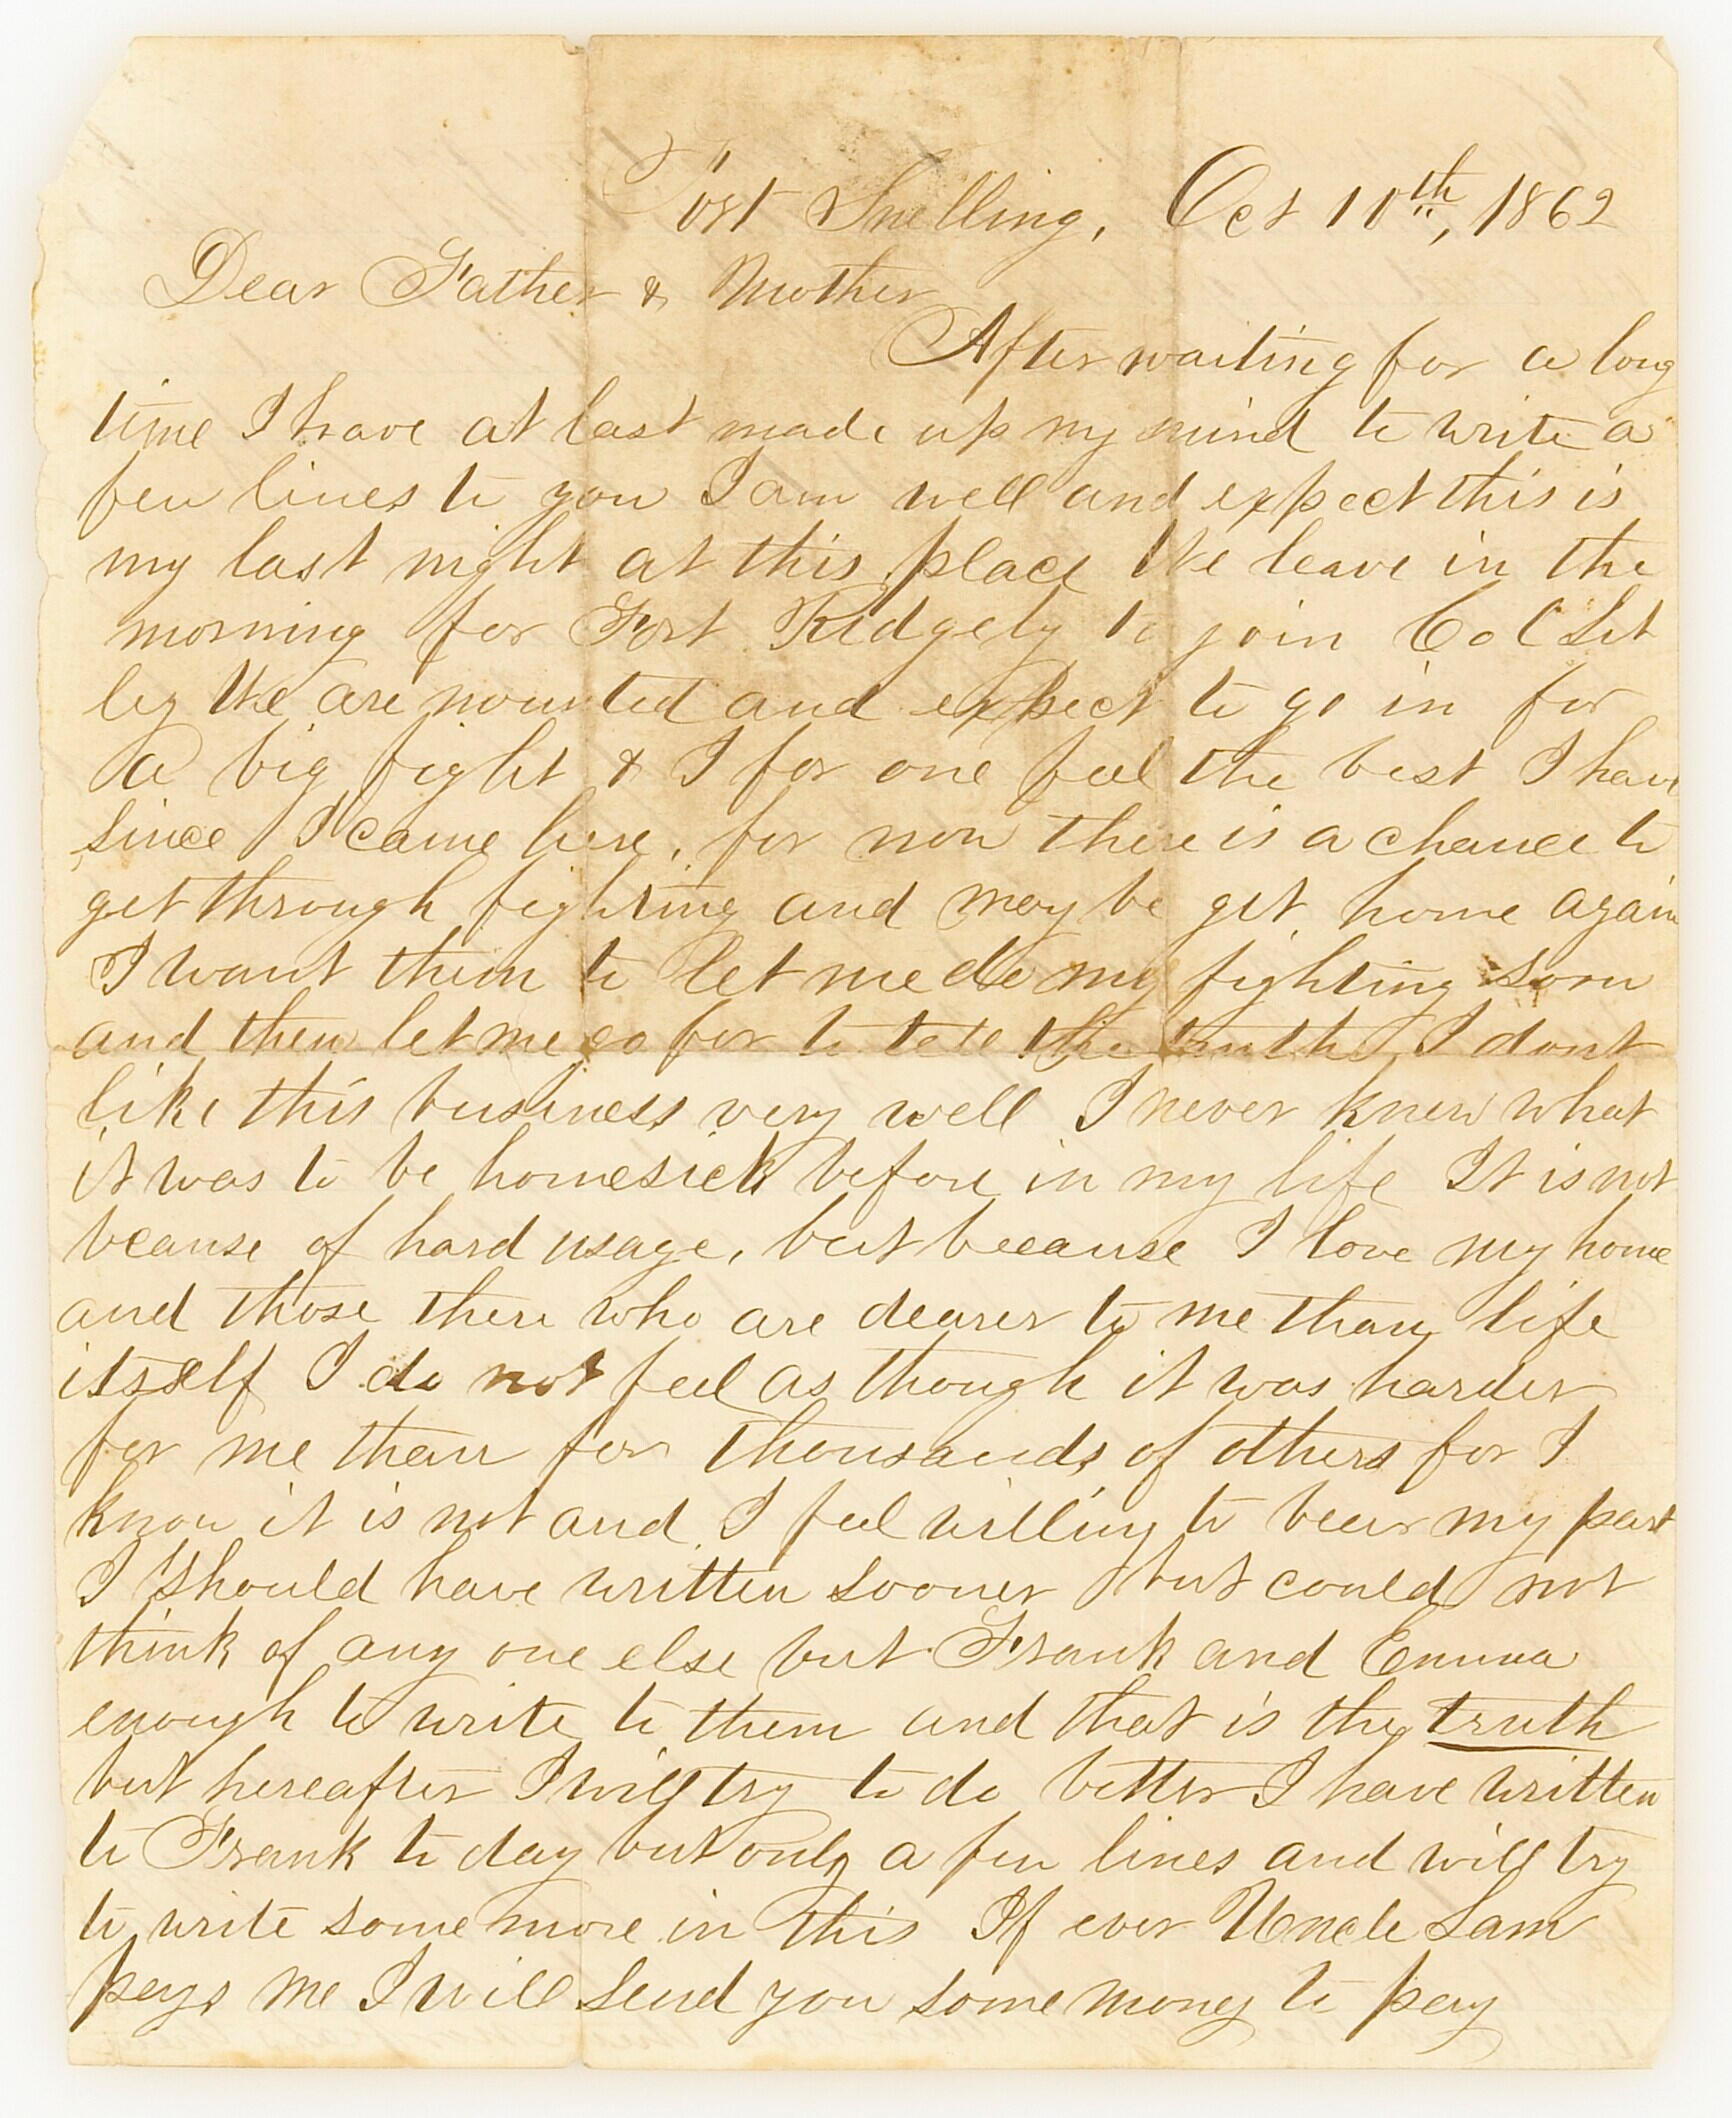 Fort Snelling, Oct 10th, 1862
Dear Father & Mother
After waiting for a long
time I have at last made up my mind to write a
few lines to you I am well and expect this is
my last night at this place We leave in the
morning for Fort Ridgely to join Col Sib
ley We are mounted and expect to go in for
a big fight & I for one feel the best I have
since I came here, for now there is a chance to
get through fighting and may be get home again
I want them to let me do my fighting soon
and then let me go for to tell the truth I dont
like this business very well I never knew what
it was to be homesick before in my life It is not
beause of hard usage, but because I love my home
and those there who are dearer to me than life
itself I do not feel as though it was harder
for me than for thousands of others for I
know it is not and I feel willing to bear my part
I should have written sooner but could not
think of any one else but Frank and Emma
enough to write to them and that is the truth
but hereafter I will try to do better I have written
to Frank to day but only a few lines and will try
to write some more in this If ever Uncle Sam
pays me I will send you some money to pay